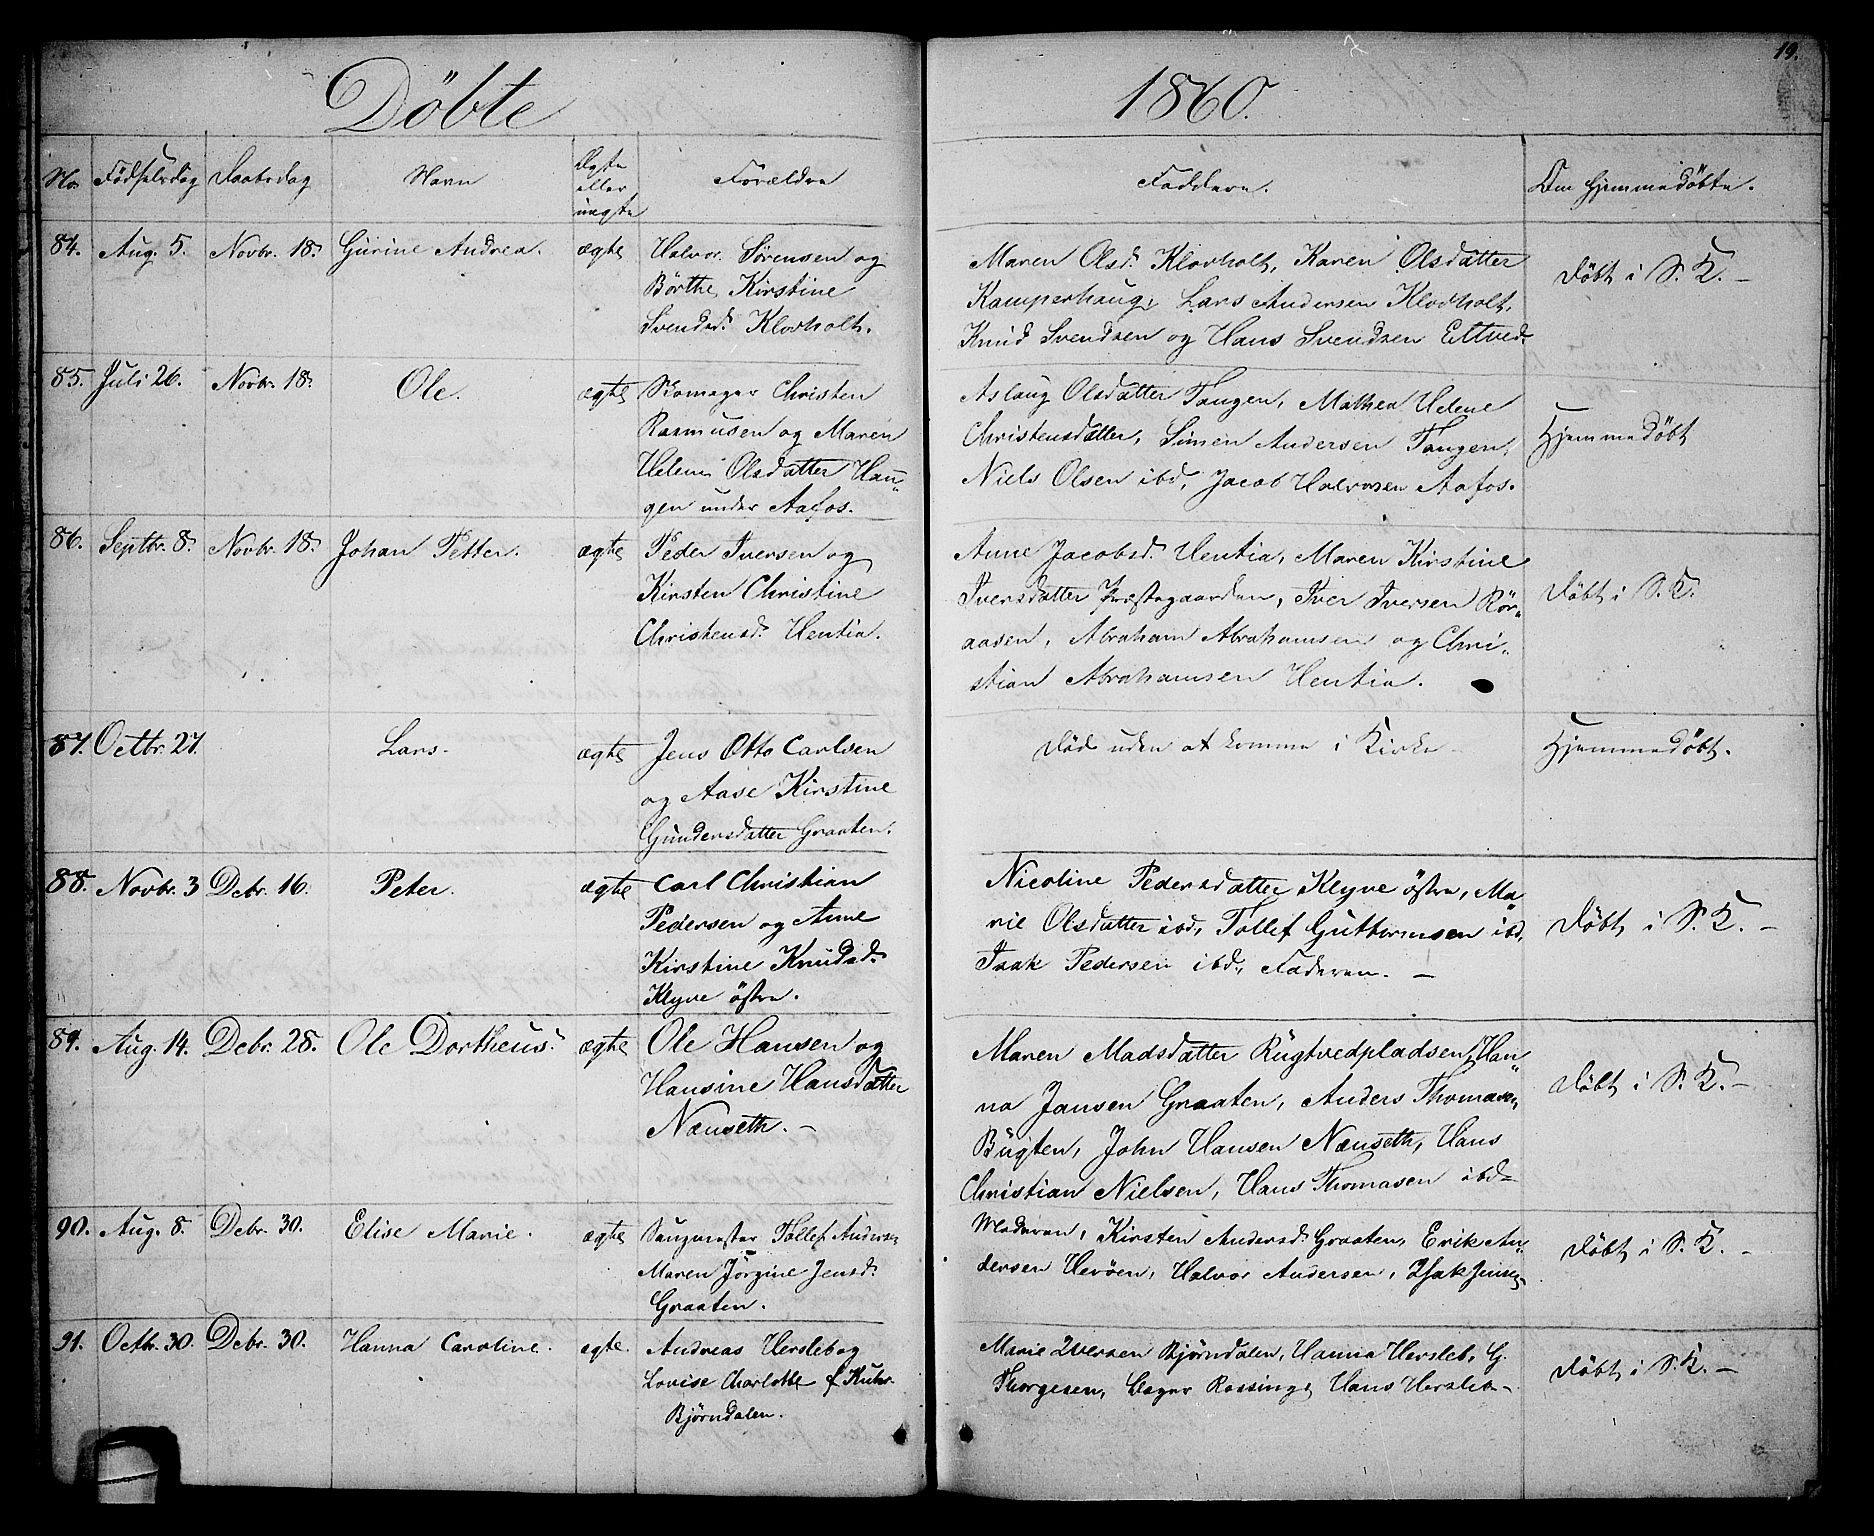 Döbte 1860.
19.
No Födselsdag Daabsdag Navn Ægte eller uægte Forældre Faddere. Om hjemmedöbte.
84. Aug. 5. Novbr. 18. Gurine Andrea. ægte
Halvor Sörensen og
Börthe Kirstine
Svendsd. Klovholt.
Maren Olsd. Klovholt, Karen Olsdatter
Kamperhaug, Lars Andersen Klovholt,
Knud Svendsen og Hans Svendsen Eltved
Döbt i S. K. –
85. Juli 26. Novbr. 18. Ole. ægte
Skomager Christen
Rasmusen og Maren
Helene Olsdatter Hau„
gen under Aafos.
Aslaug Olsdatter Tangen, Mathea Helene
Christensdatter, Simen Andersen Tangen,
Niels Olsen ibd, Jacob Halvorsen Aafos.
Hjemmedöbt
86. Septbr. 8. Novbr. 18. Johan Petter. ægte
Peder Iversen og
Kirsten Christine
Christensd. Hentia.
Anne Jacobsd. Hentia, Maren Kirstine
Iversdatter Præstegaarden, Iver Iversen Rör„
aasen, Abraham Abrahamsen og Chri„
stian Abrahamsen Hentia.
Döbt i S. K.
87. Octbr. 27. Lars. ægte
Jens Otto Carlsen
og Aase Kirstine
Gundersdatter Graaten.
Död uden at komme i Kirke –
Hjemmedöbt.
88. Novbr. 3 Debr. 16. Peter. ægte
Carl Christian
Pedersen og Anne
Kirstine Knudsd.
Klyve östre.
Nicoline Pedersdatter Klyve östre, Ma„
rie Olsdatter ibd, Tollef Guttormsen ibd,
Isak Pedersen ibd, Faderen. –
Döbt i S. K. –
89. Aug. 14. Debr. 28. Ole Dortheus. ægte
Ole Hansen og
Hansine Hansdatter
Næuseth. –
Maren Madsdatter Rugtvedpladsen, Han„
na Jansen Graaten, Anders Thomasen
Bugten, John Hansen Næuseth, Hans
Christian Nielsen, Hans Thomasen ibd
Döbt i S. K. –
90. Aug. 8. Debr. 30. Elise Marie. ægte
Saugmester Tollef Andersen
Maren Jörgine Jensd.
Graaten.
Moderen, Kirsten Andersd. Graaten, Erik An„
dersen Heröen, Halvor Andersen, Isak Jensen
Döbt i S. K. –
91. Octb. 30. Debr. 30. Hanna Caroline. egte.
Andreas Hersleb og
Lovise Charlotte f Kuhr
Björndalen.
Marie Iversen Björndalen, Hanna Hersleb, G.
Thorgesen, Rossing, Hans Hersleb –
Döbt i S. K. –